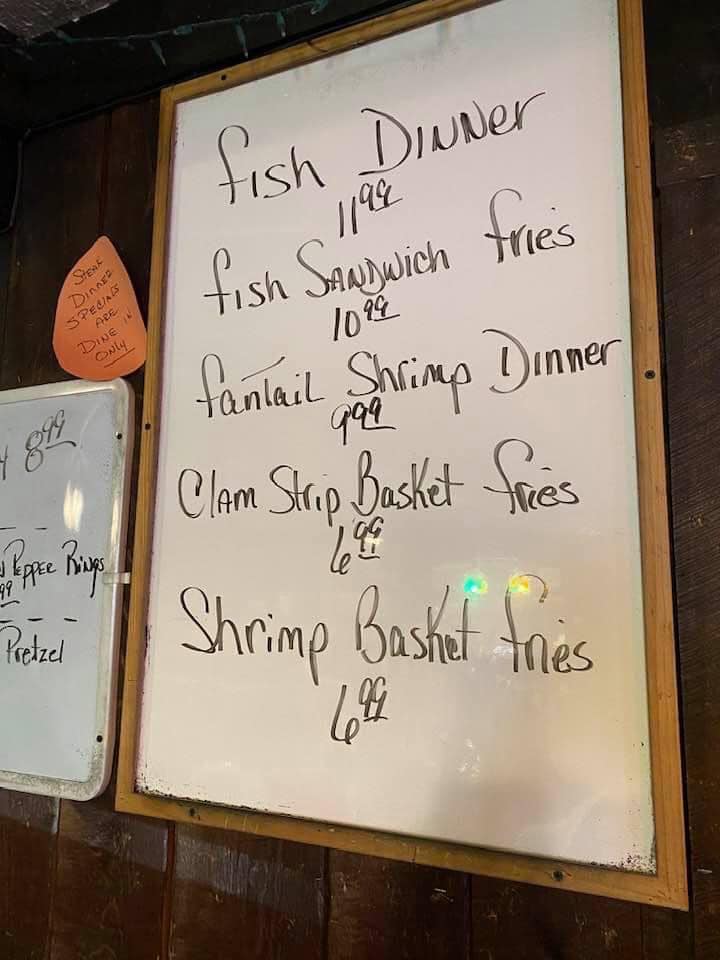 fish Dinner
11.99
fish Sandwich fries
10.99
fantail Shrimp Dinner
9.99
Clam Strip Basket fries
6.99
Shrimp Basket fries
6.99
Steak
Dinner
Specials
are
Dine in
only
8.99
Pepper Rings
99
Pretzel